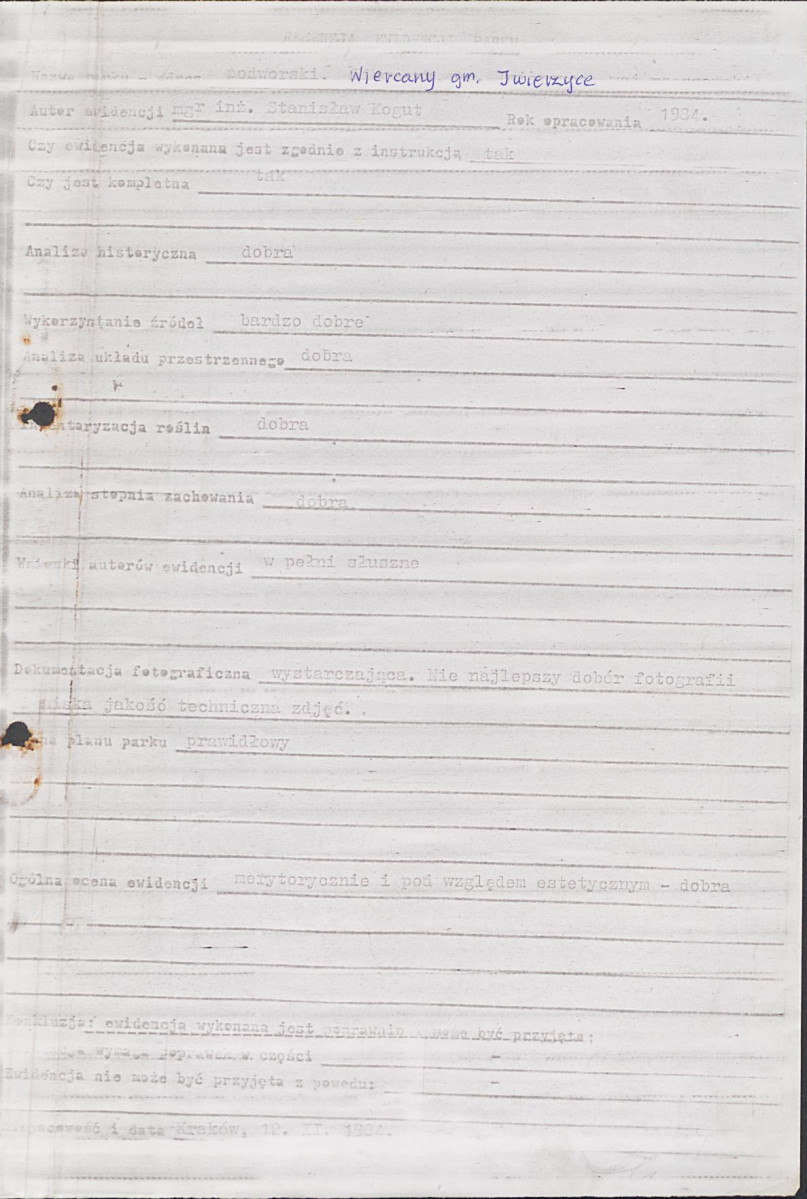 podworski. Wiercany gm. Iwierzyce
Autor ewidencji mgr inż. Stanisław Kogut Rok opracowania 1984.
Czy ewidencja wykonana jest zgodnie z instrukcją tak
Czy jest kompletna tak
Analiza historyczna dobra
Wykorzystanie źródeł bardzo dobre
Analiza układu przestrzennego dobra
Inwentaryzacja roślin dobra
Analiza stopnia zachowania dobra
Wnioski autorów ewidencji w pełni słuszne
Dokumentacja fotograficzna wystarczająca. Nie najlepszy dobór fotografii
niska jakość techniczna zdjęć.
planu parku prawidłowy
Ogólna ocena ewidencji merytorycznie i pod względem estetycznym - dobra
Konkluzja: ewidencja wykonana jest poprawnie i może być przyjęta;
w części -
Ewidencja nie może być przyjęta z powodu: -
Miejscowość i data Kraków, 12. XI. 1984.